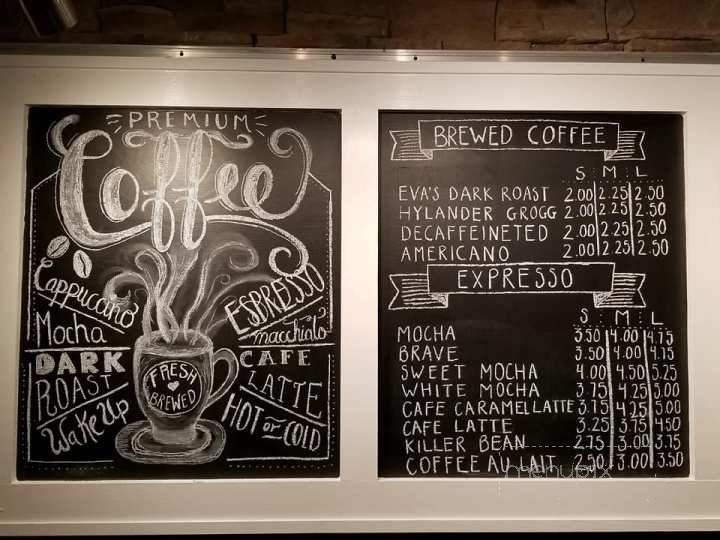 PREMIUM
Coffee
Cappuccino
Mocha
DARK
ROAST
Wake Up
ESPRESSO
macchiato
CAFE
LATTE
HOT or COLD
FRESH
BREWED
BREWED COFFEE
S M L
EVA'S DARK ROAST 2.00 2.25 2.50
HYLANDER GROGG 2.00 2.25 2.50
DECAFFEINETED 2.00 2.25 2.50
AMERICANO 2.00 2.25 2.50
EXPRESSO
S M L
MOCHA 3.50 4.00 4.75
BRAVE 3.50 4.00 4.75
SWEET MOCHA 4.00 4.50 5.25
WHITE MOCHA 3.75 4.25 5.00
CAFE CARAMELLATTE 3.75 4.25 5.00
CAFE LATTE 3.25 3.75 4.50
KILLER BEAN 2.75 3.00 3.75
COFFEE AU LAIT 2.50 3.00 3.50
menupix